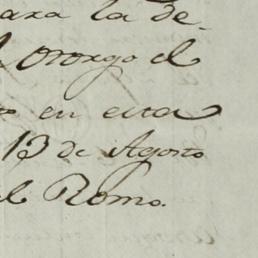 para la de-
otorgo el
en esta
13 de Agosto
el Romo.